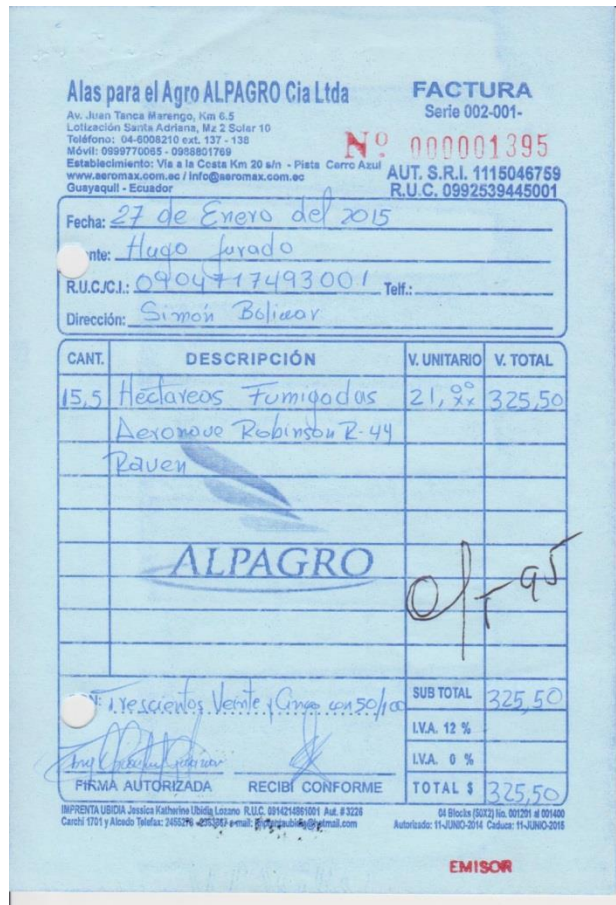 Alas para el Agro ALPAGRO Cia Ltda
Av. Juan Tanca Marengo, Km 6.5
Lotización Santa Adriana, Mz 2 Solar 10
Teléfono: 04-6008210 ext. 137 - 138
Móvil: 0999770065 - 0988801769
Establecimiento: Vía a la Costa Km 20 s/n - Pista Cerro Azul
www.aeromax.com.ec / info@aeromax.com.ec
Guayaquil - Ecuador
FACTURA
Serie 002-001-
Nº 000001395
AUT. S.R.I. 1115046759
R.U.C. 0992539445001
Fecha: 27 de Enero del 2015
nte: Hugo Jurado
R.U.C./C.I.: 0904717493001 Telf.:
Dirección: Simón Bolivar
CANT. DESCRIPCIÓN V. UNITARIO V. TOTAL
15,5 Hectareas Fumigadas 21,ºº xx 325,50
Aeronave Robinson R-44
Raven
ALPAGRO
95
SON: Trescientos Veinte y Cinco con 50/100
SUB TOTAL 325,50
I.V.A. 12 %
I.V.A. 0 %
FIRMA AUTORIZADA RECIBÍ CONFORME TOTAL $ 325,50
IMPRENTA UBIDIA Jessica Katherine Ubidia Lozano R.U.C. 0914214861001 Aut. # 3226
Carchi 1701 y Alcedo Telefax:
04 Blocks (50X2) No. 001201 al 001400
Autorizado: 11-JUNIO-2014 Caduca: 11-JUNIO-2015
EMISOR